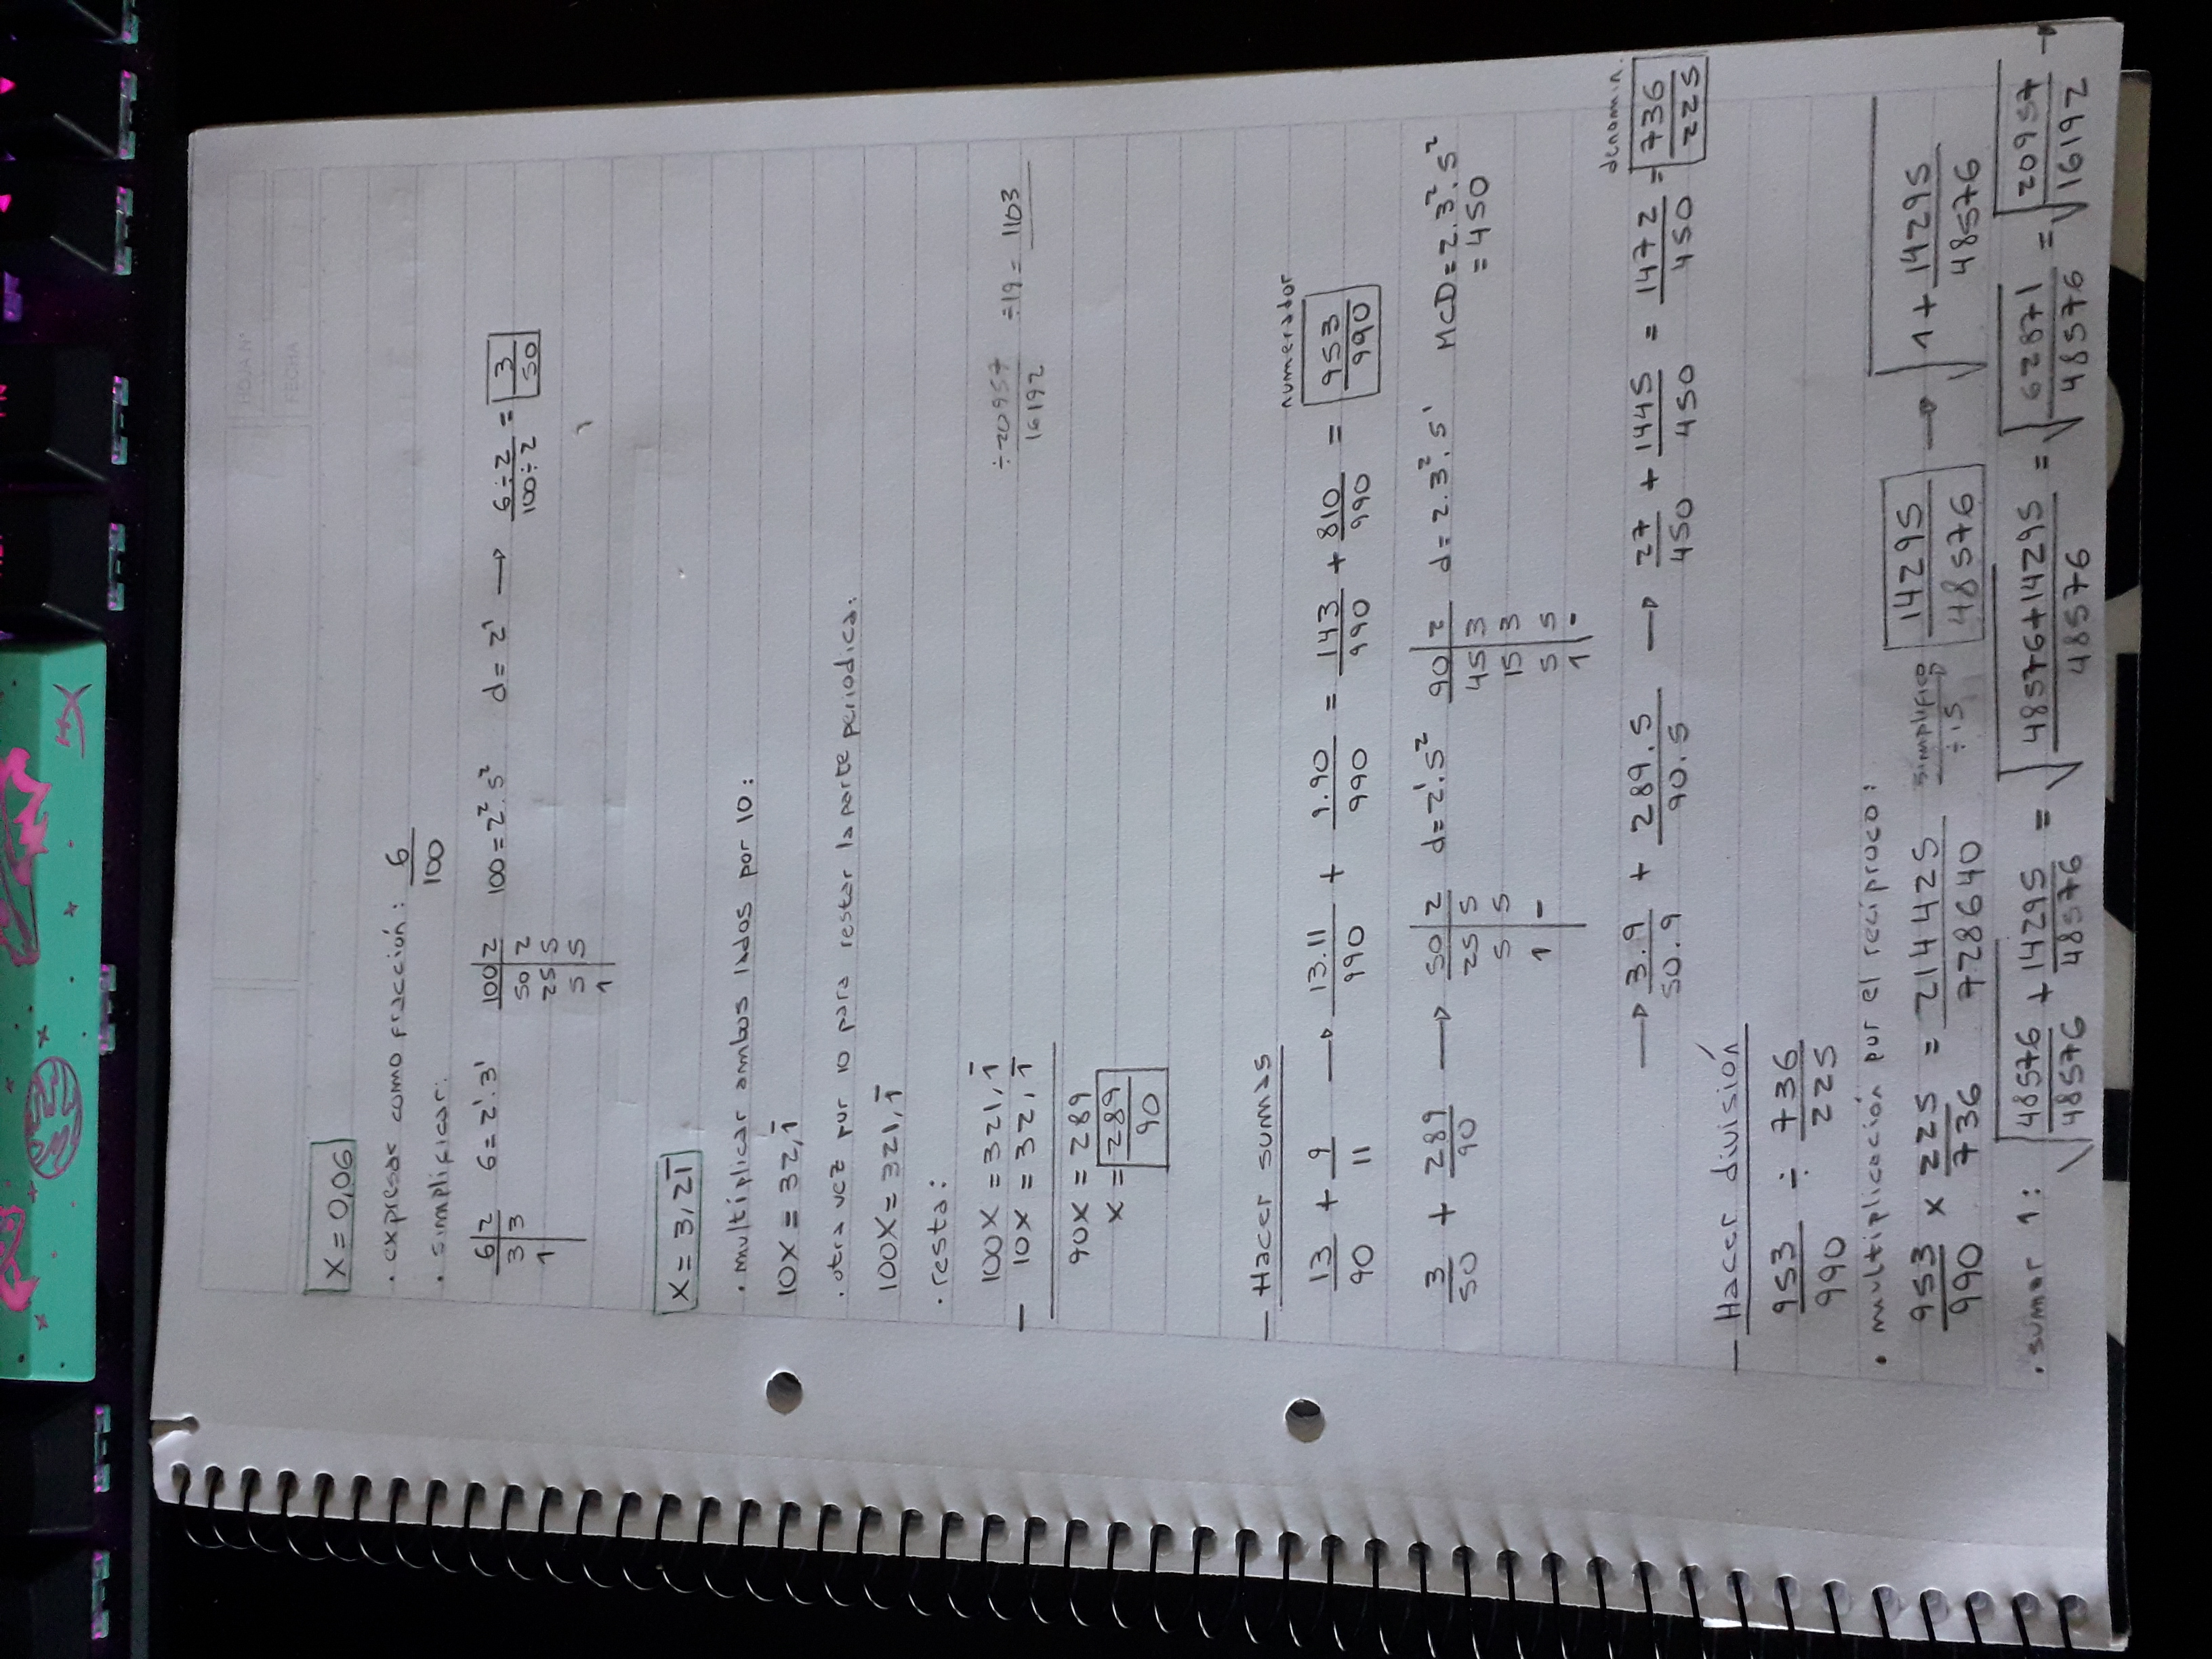 HOJA N°
FECHA
x = 0,06
. expresar como fracción: 6/100
. simplificar:
6|2 6 = 2¹.3¹ 100|2 100 = 2².5² d = 2¹ → (6÷2)/(100÷2) = 3/50
3|3 50|2
1| 25|5
5|5
1|
x = 3,21̄
. multiplicar ambos lados por 10:
10x = 32,1̄
. otra vez por 10 para restar la parte periodica:
100x = 321,1̄
. resta:
100x = 321,1̄
- 10x = 32,1̄
90x = 289
x = 289/90
÷20957/16192 ÷19 = 1103
— Hacer sumas
numerador
13/90 + 9/11 → 13.11/990 + 9.90/990 = 143/990 + 810/990 = 953/990
3/50 + 289/90 → 50|2 d = 2¹.5² 90|2 d = 2.3².5¹ MCD = 2.3².5²
25|5 45|3 = 450
5|5 15|3
1|- 5|5
1|-
denomin.
→ 3.9/50.9 + 289.5/90.5 → 27/450 + 1445/450 = 1472/450 = 736/225
— Hacer división
953/990 ÷ 736/225
. multiplicación por el recíproco:
953/990 x 225/736 = 214425/728640 simplifico ÷15 → 14295/48576 → √(1 + 14295/48576)
. sumar 1: √(48576/48576 + 14295/48576) = √((48576+14295)/48576) = √(62871/48576) = √(20957/16192) →